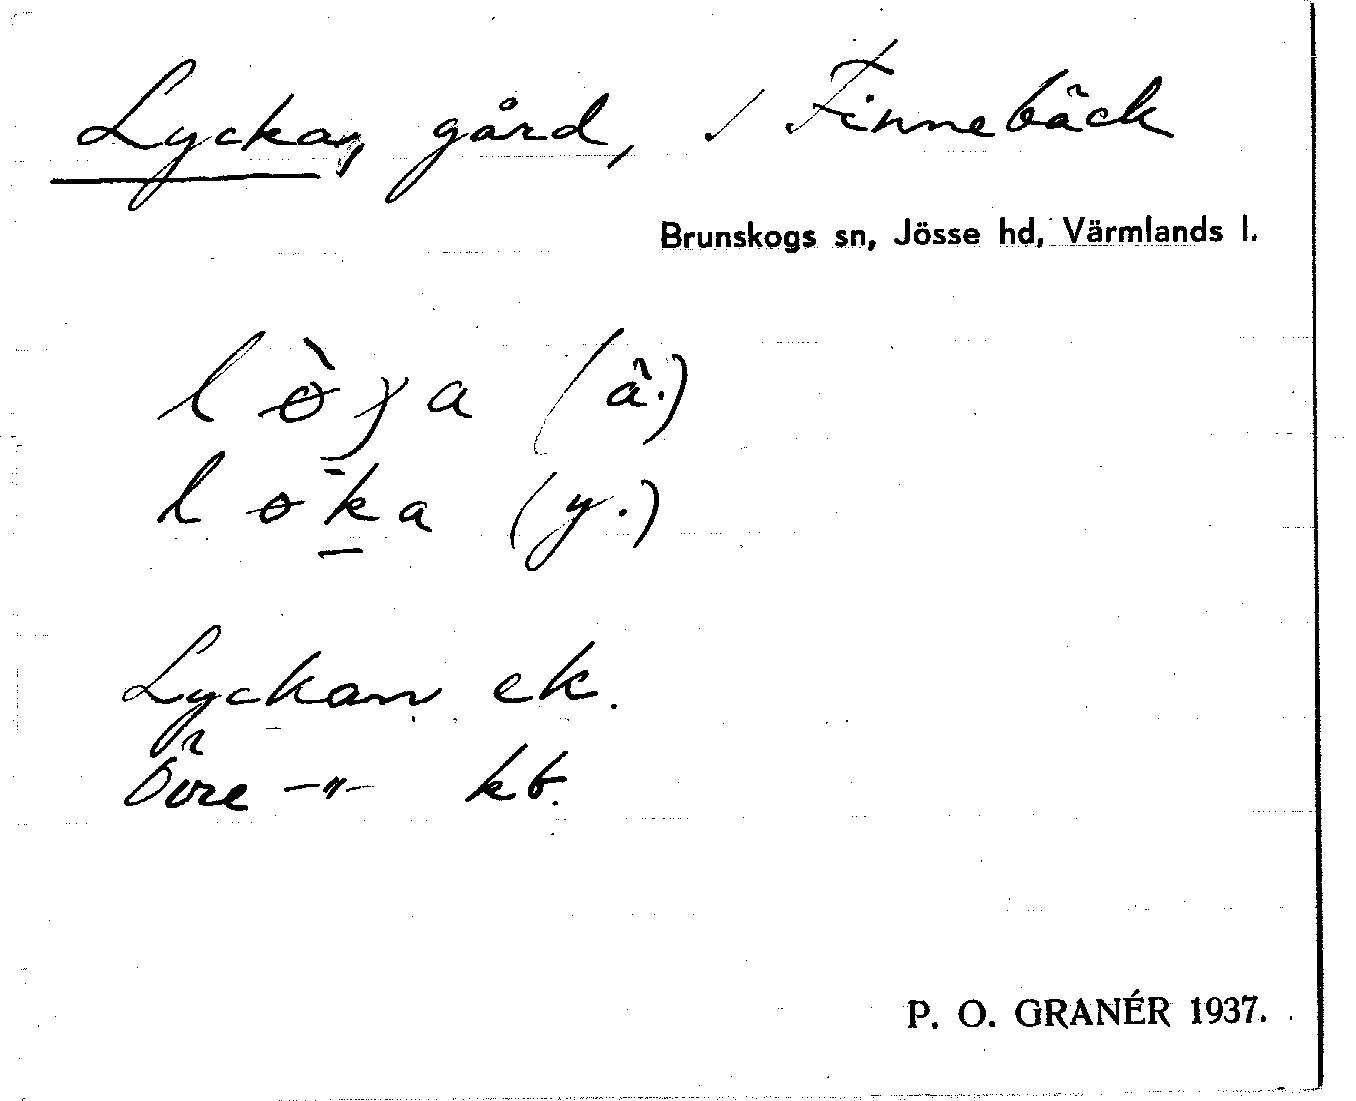 Lycka, gård, / Finnebäck
Brunskogs sn, Jösse hd, Värmlands l.
(ä.)
(y.)
Lyckan ek.
Övre -"- kb.
P. O. GRANÉR 1937.